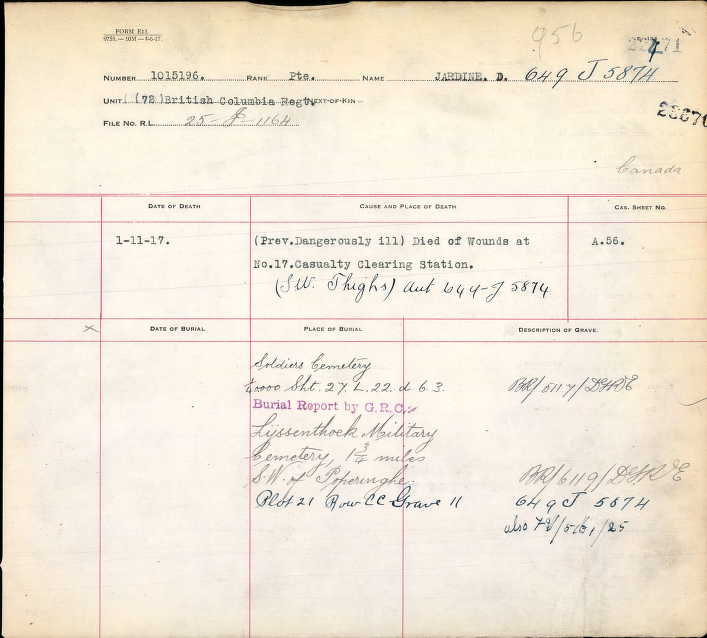 FORM E11.
956
NUMBER 1015196. RANK Pte. NAME JARDINE. D. 649 J 5874
UNIT. (72) British Columbia Regt. NEXT-OF-KIN
FILE NO. R.L. 25-J-1164
Canada
DATE OF DEATH CAUSE AND PLACE OF DEATH CAS. SHEET NO.
1-11-17. (Prev.Dangerously ill) Died of Wounds at A.56.
No.17.Casualty Clearing Station.
(S.W. Thighs) Aut 644-J 5874
x DATE OF BURIAL PLACE OF BURIAL DESCRIPTION OF GRAVE.
Soldiers Cemetery
Sht. 27. L. 22. d 6.3.
Burial Report by G.R.C.
Lijssenthoek Military
Cemetery, 1 3/4 miles
S.W. of Poperinghe.
Plot 21 Row CC Grave 11 649 J 5874
also